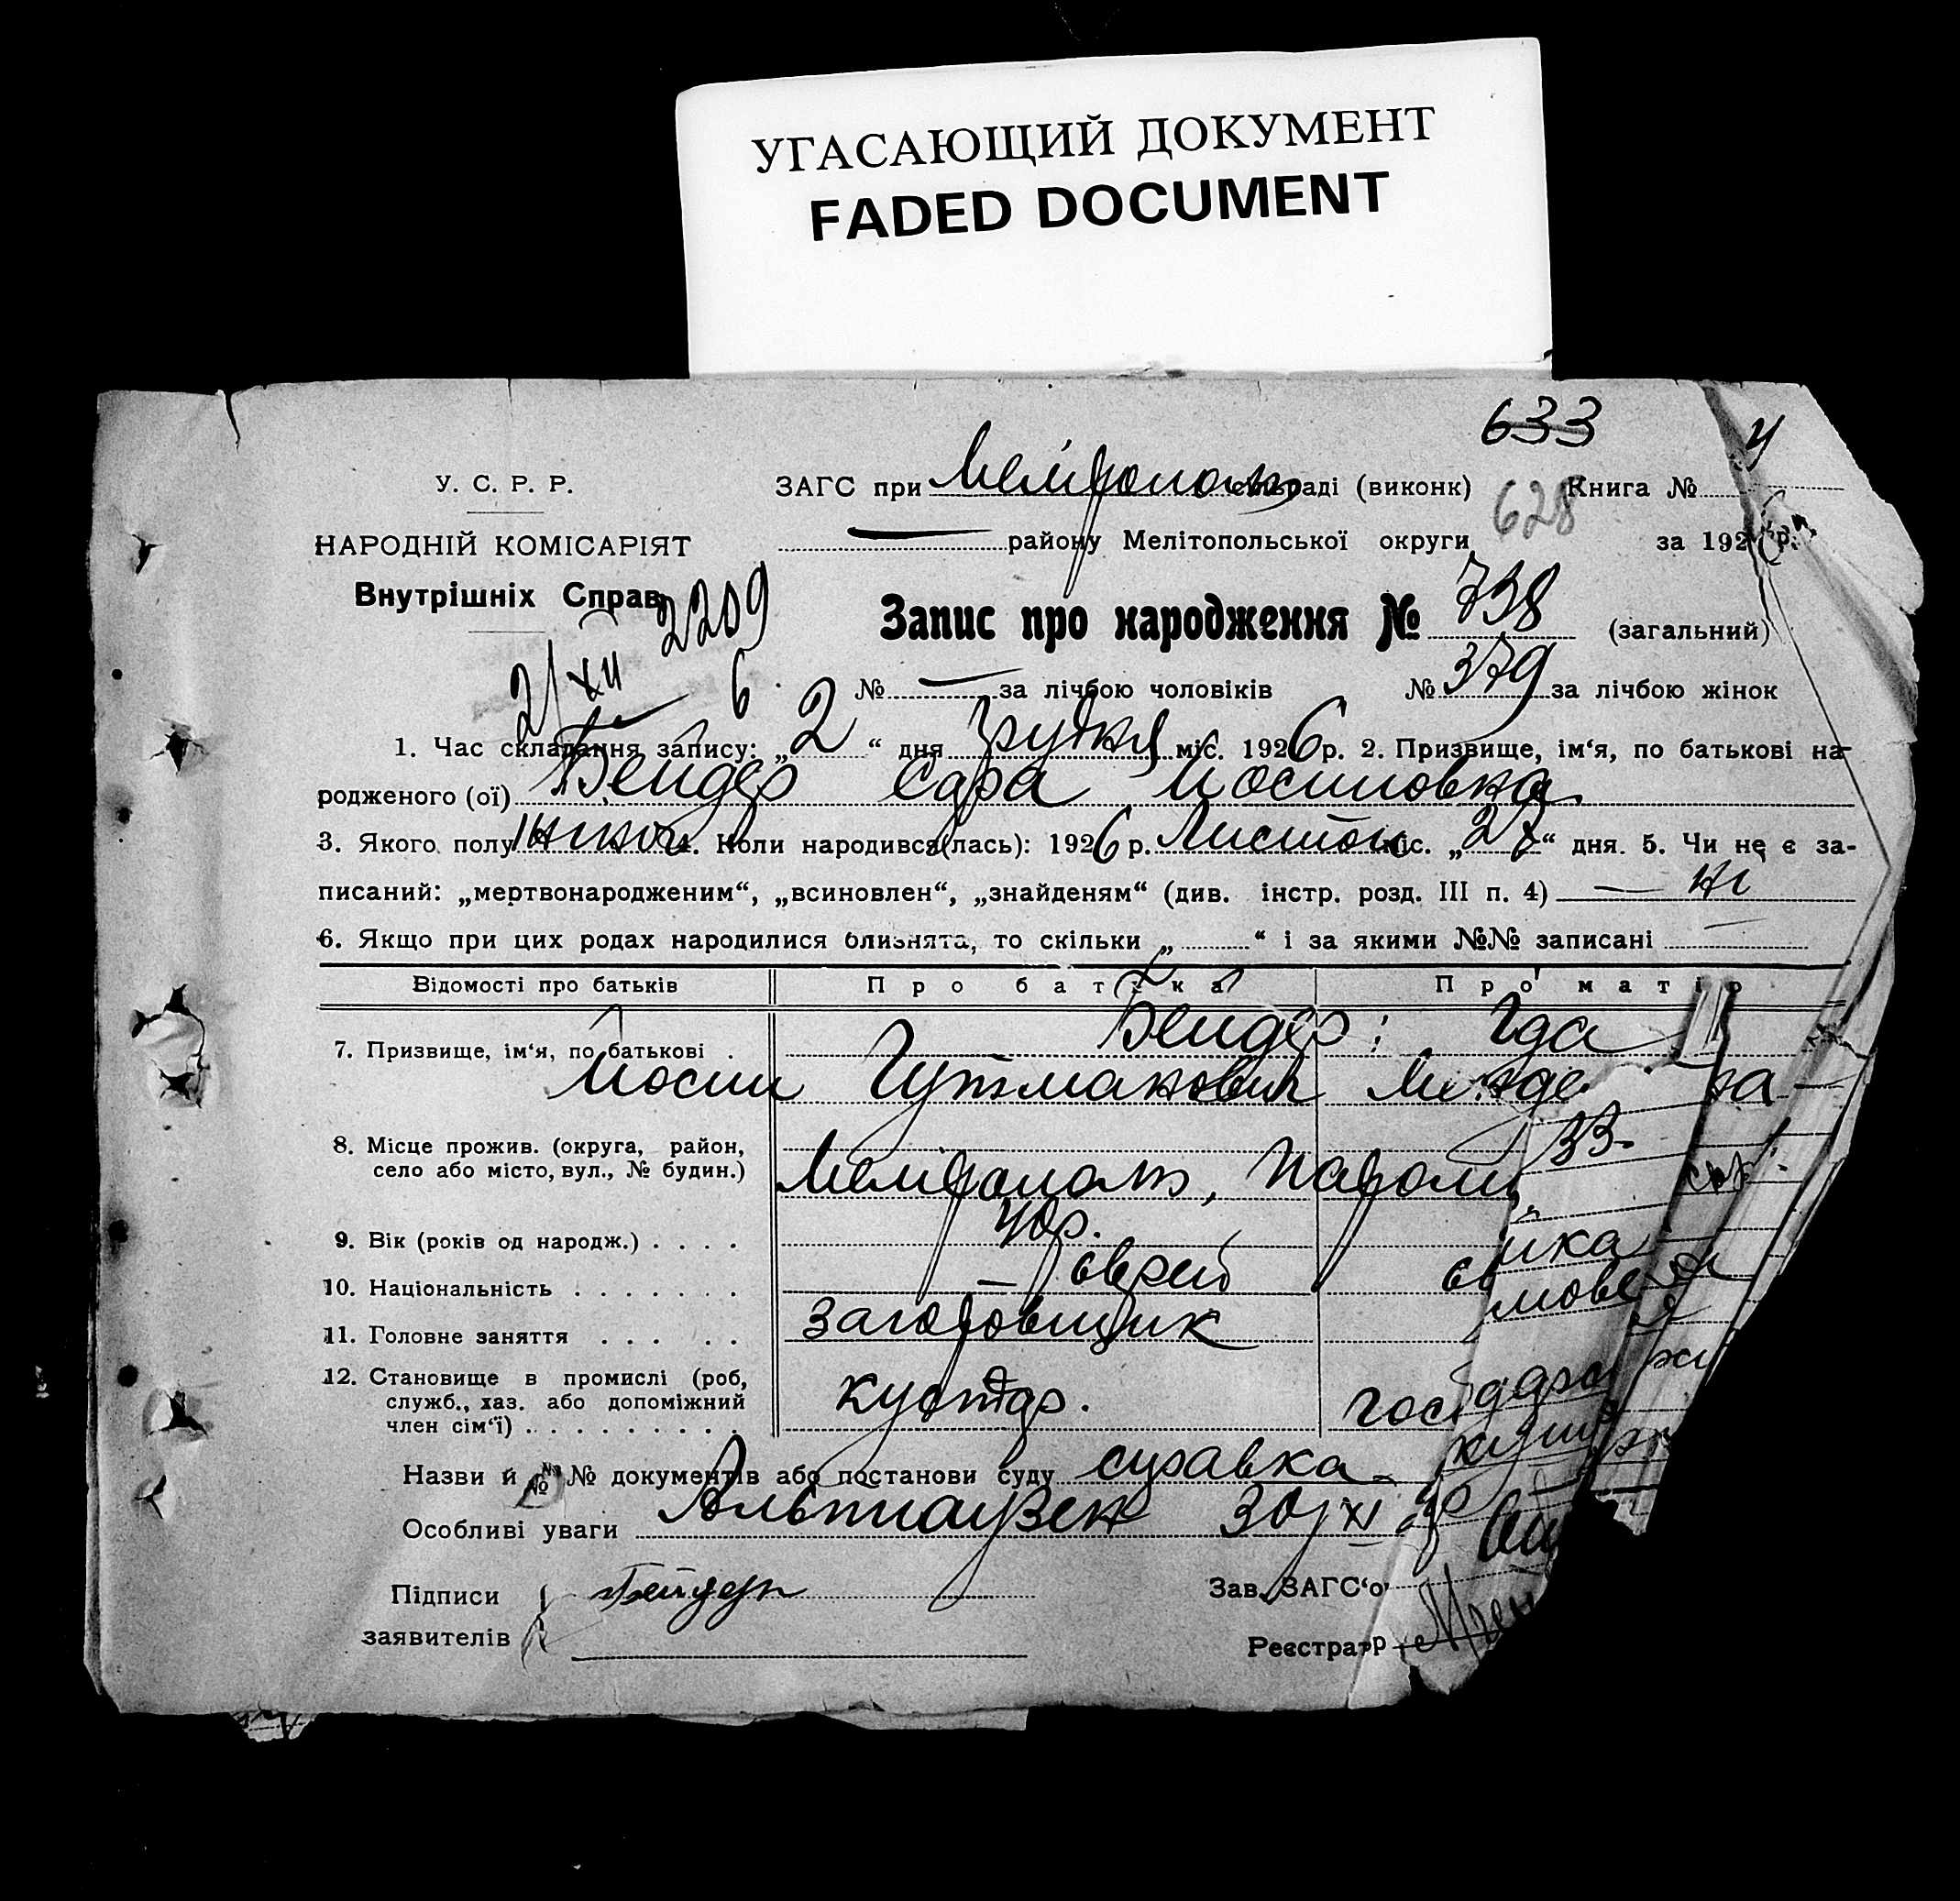 УГАСАЮЩИЙ ДОКУМЕНТ
FADED DOCUMENT
633
У. С. Р. Р.
ЗАГС при сельраді (виконк) Книга №
628
НАРОДНІЙ КОМІСАРІЯТ
району Мелітопольської округи за 1926 р.
Внутрішніх Справ
2209
Запис про народження № 738 (загальний)
21/XII 6
№ — за лічбою чоловіків № 379 за лічбою жінок
1. Час складання запису: „2“ дня грудня міс. 1926 р. 2. Призвище, ім‘я, по батькові на-
родженого (ої) Бейдер Сара Йосиповна
3. Якого полу жіноч. 4. Коли народився(лась): 1926 р. Листоп міс. „27“ дня. 5. Чи не є за-
писаний: „мертвонародженим“, „всиновлен“, „знайденям“ (див. інстр. розд. III п. 4) — ні
6. Якщо при цих родах народилися близнята, то скільки „ “ і за якими №№ записані
Відомості про батьків Про батька Про матір
7. Призвище, ім‘я, по батькові . Бейдер: Іда
Йосип Гутманович
8. Місце прожив. (округа, район,
село або місто, вул., № будин.) Мелітополь, 33.
9. Вік (років од народж.) . . . . 40р.
10. Національність . . . . . . . — єврей
11. Головне заняття . . . . . заготовщик
12. Становище в промислі (роб,
служб., хаз. або допоміжний
член сім‘ї) . . . . . . . . . . кустар.
Назви й №№ документів або постанови суду справка
Особливі уваги Альтгаузен 30/XI
Підписи Бейдер Зав. ЗАГС‘о
заявителів Реєстратр